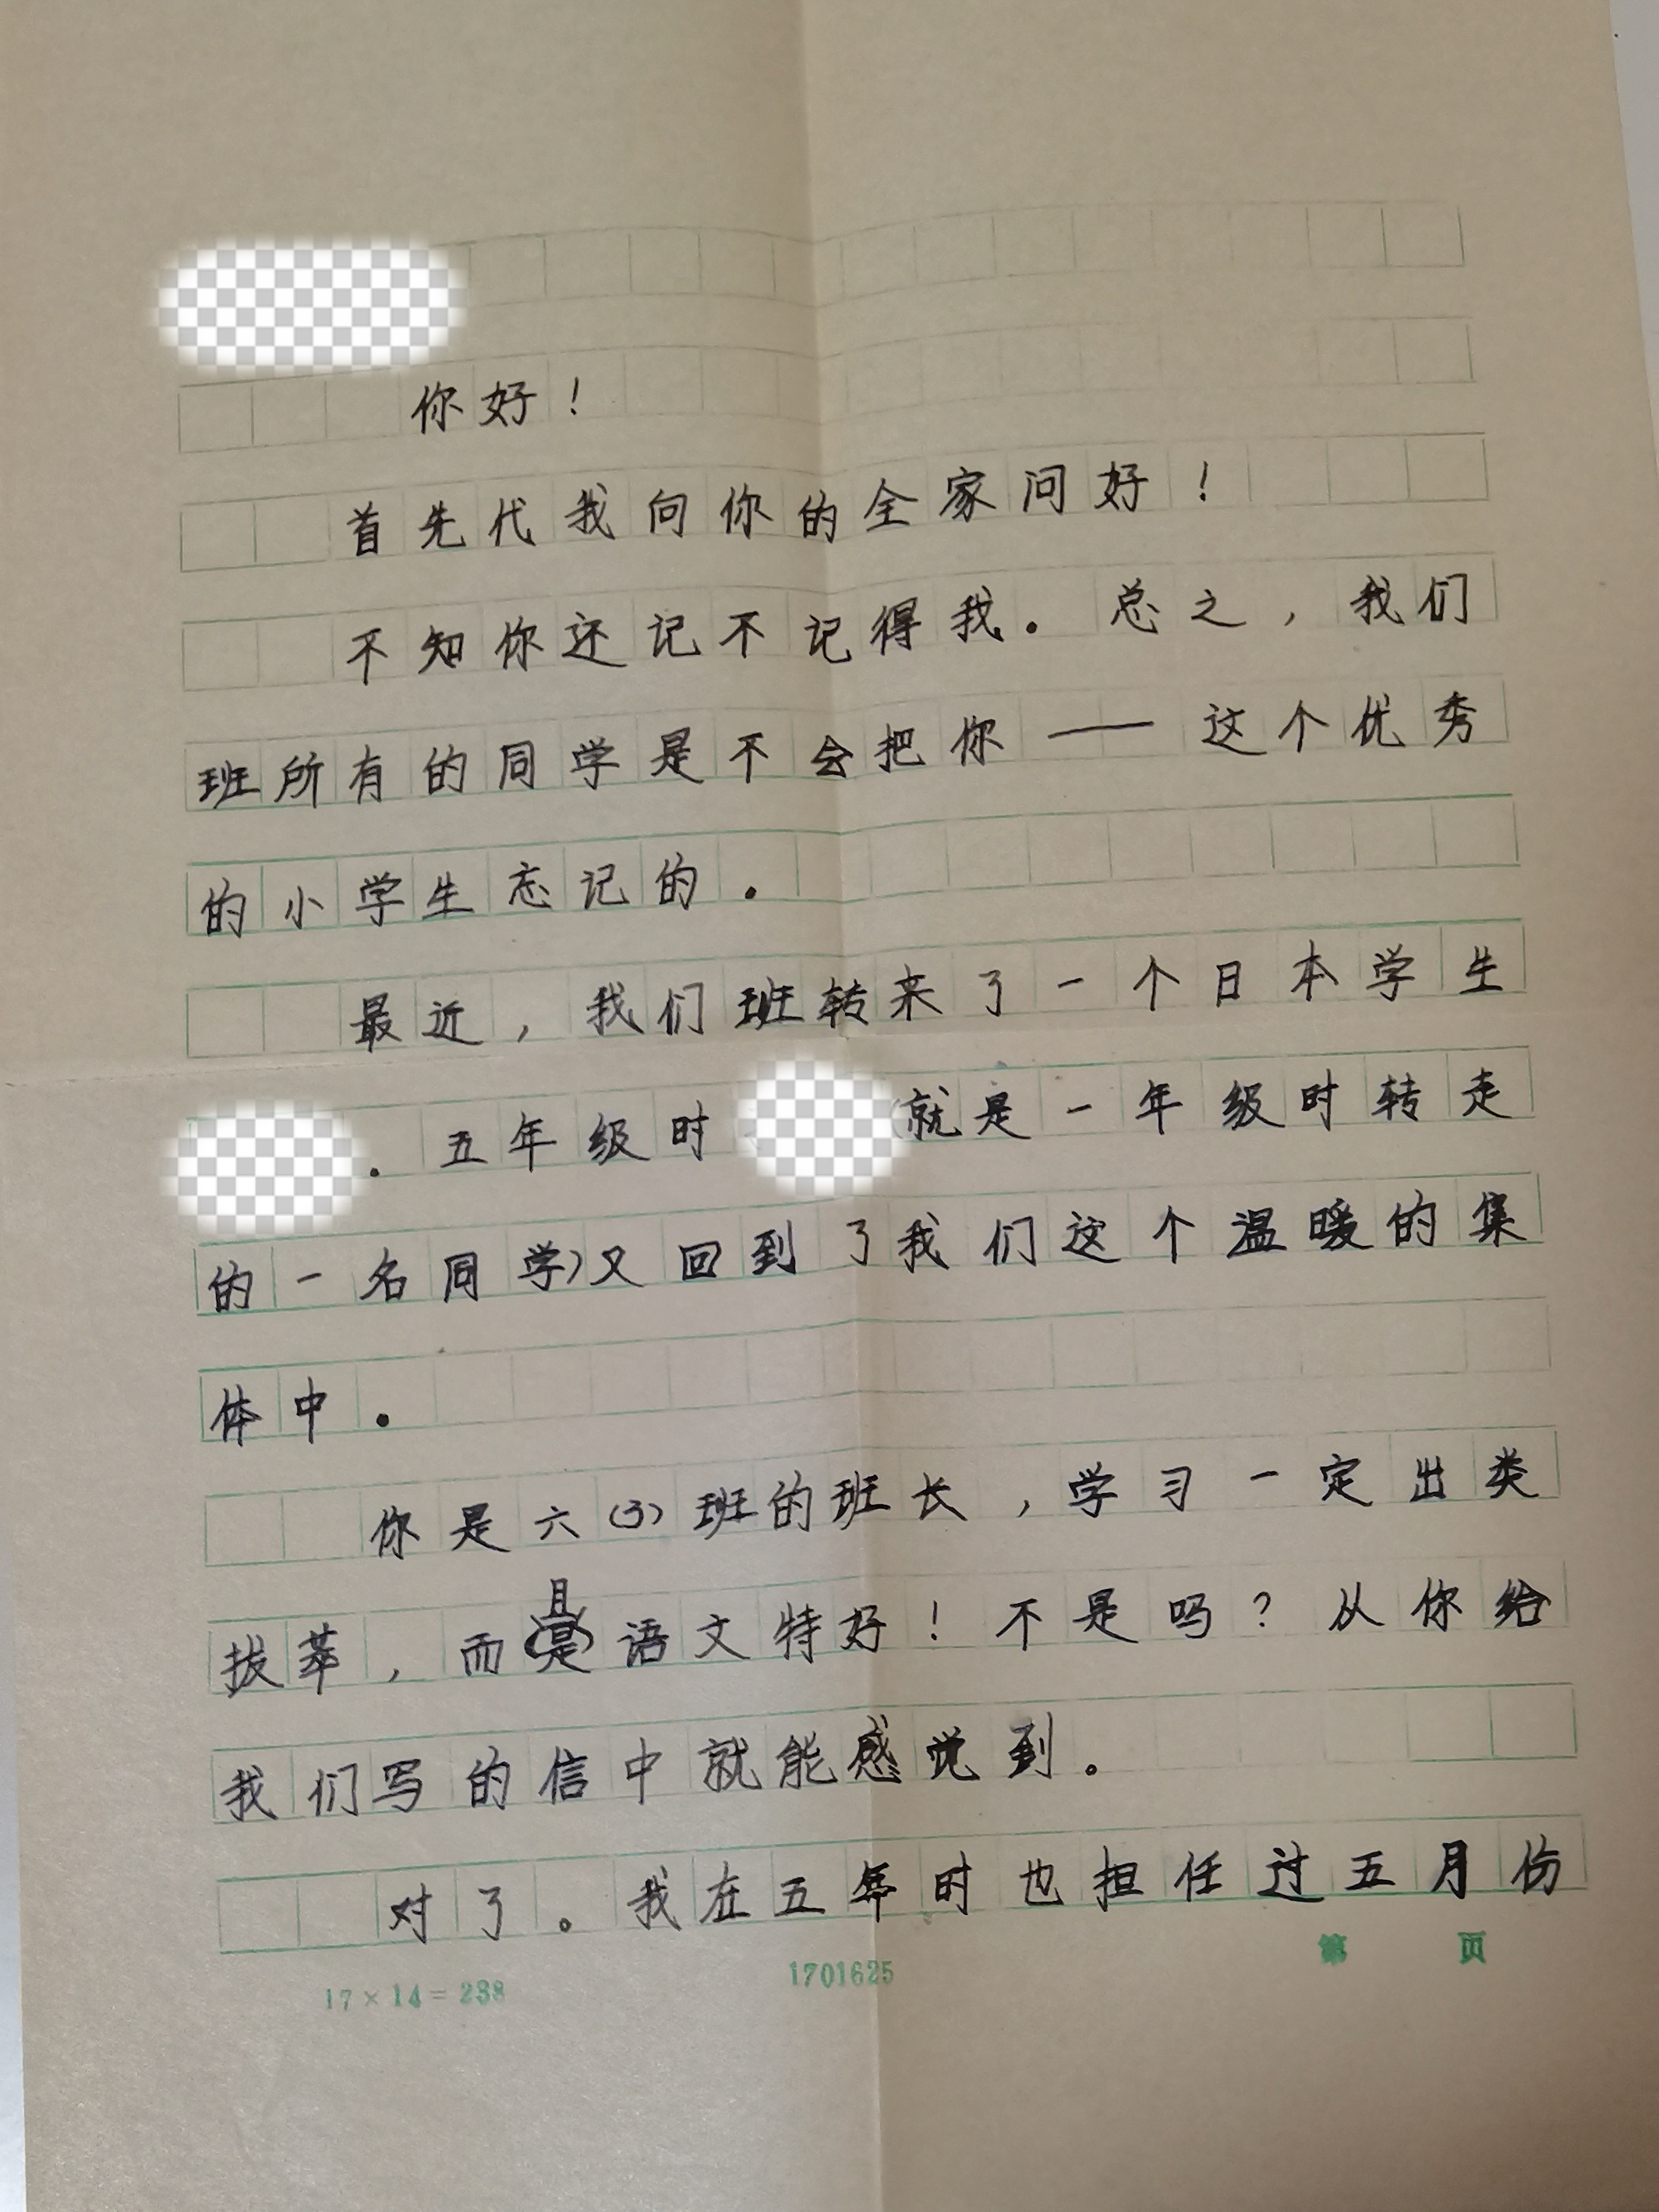 你好！
首先代我向你的全家问好！
不知你还记不记得我。总之，我们
班所有的同学是不会把你——这个优秀
的小学生忘记的。
最近，我们班转来了一个日本学生
。五年级时（就是一年级时转走
的一名同学）又回到了我们这个温暖的集
体中。
你是六（3）班的班长，学习一定出类
拔萃，而且语文特好！不是吗？从你给
我们写的信中就能感觉到。
对了。我在五年时也担任过五月份
第 页
17×14=238
1701625